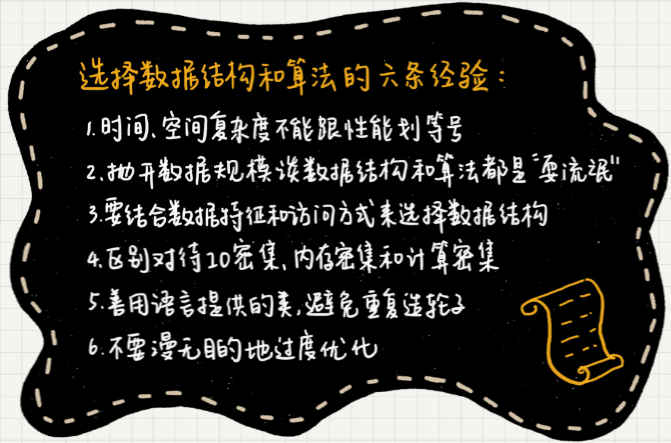 选择数据结构和算法的六条经验：
1.时间、空间复杂度不能跟性能划等号
2.抛开数据规模谈数据结构和算法都是“耍流氓”
3.要结合数据特征和访问方式来选择数据结构
4.区别对待IO密集、内存密集和计算密集
5.善用语言提供的类，避免重复造轮子
6.不要漫无目的地过度优化